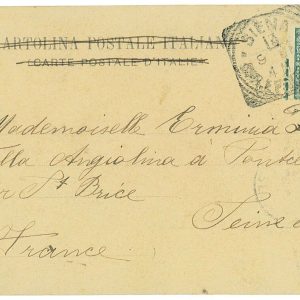 CARTOLINA POSTALE ITALIAN
(CARTE POSTALE D'ITALIE)
SIENA
Mademoiselle Erminia
Villa Angiolina à Pontce
par St Brice
Seine
France